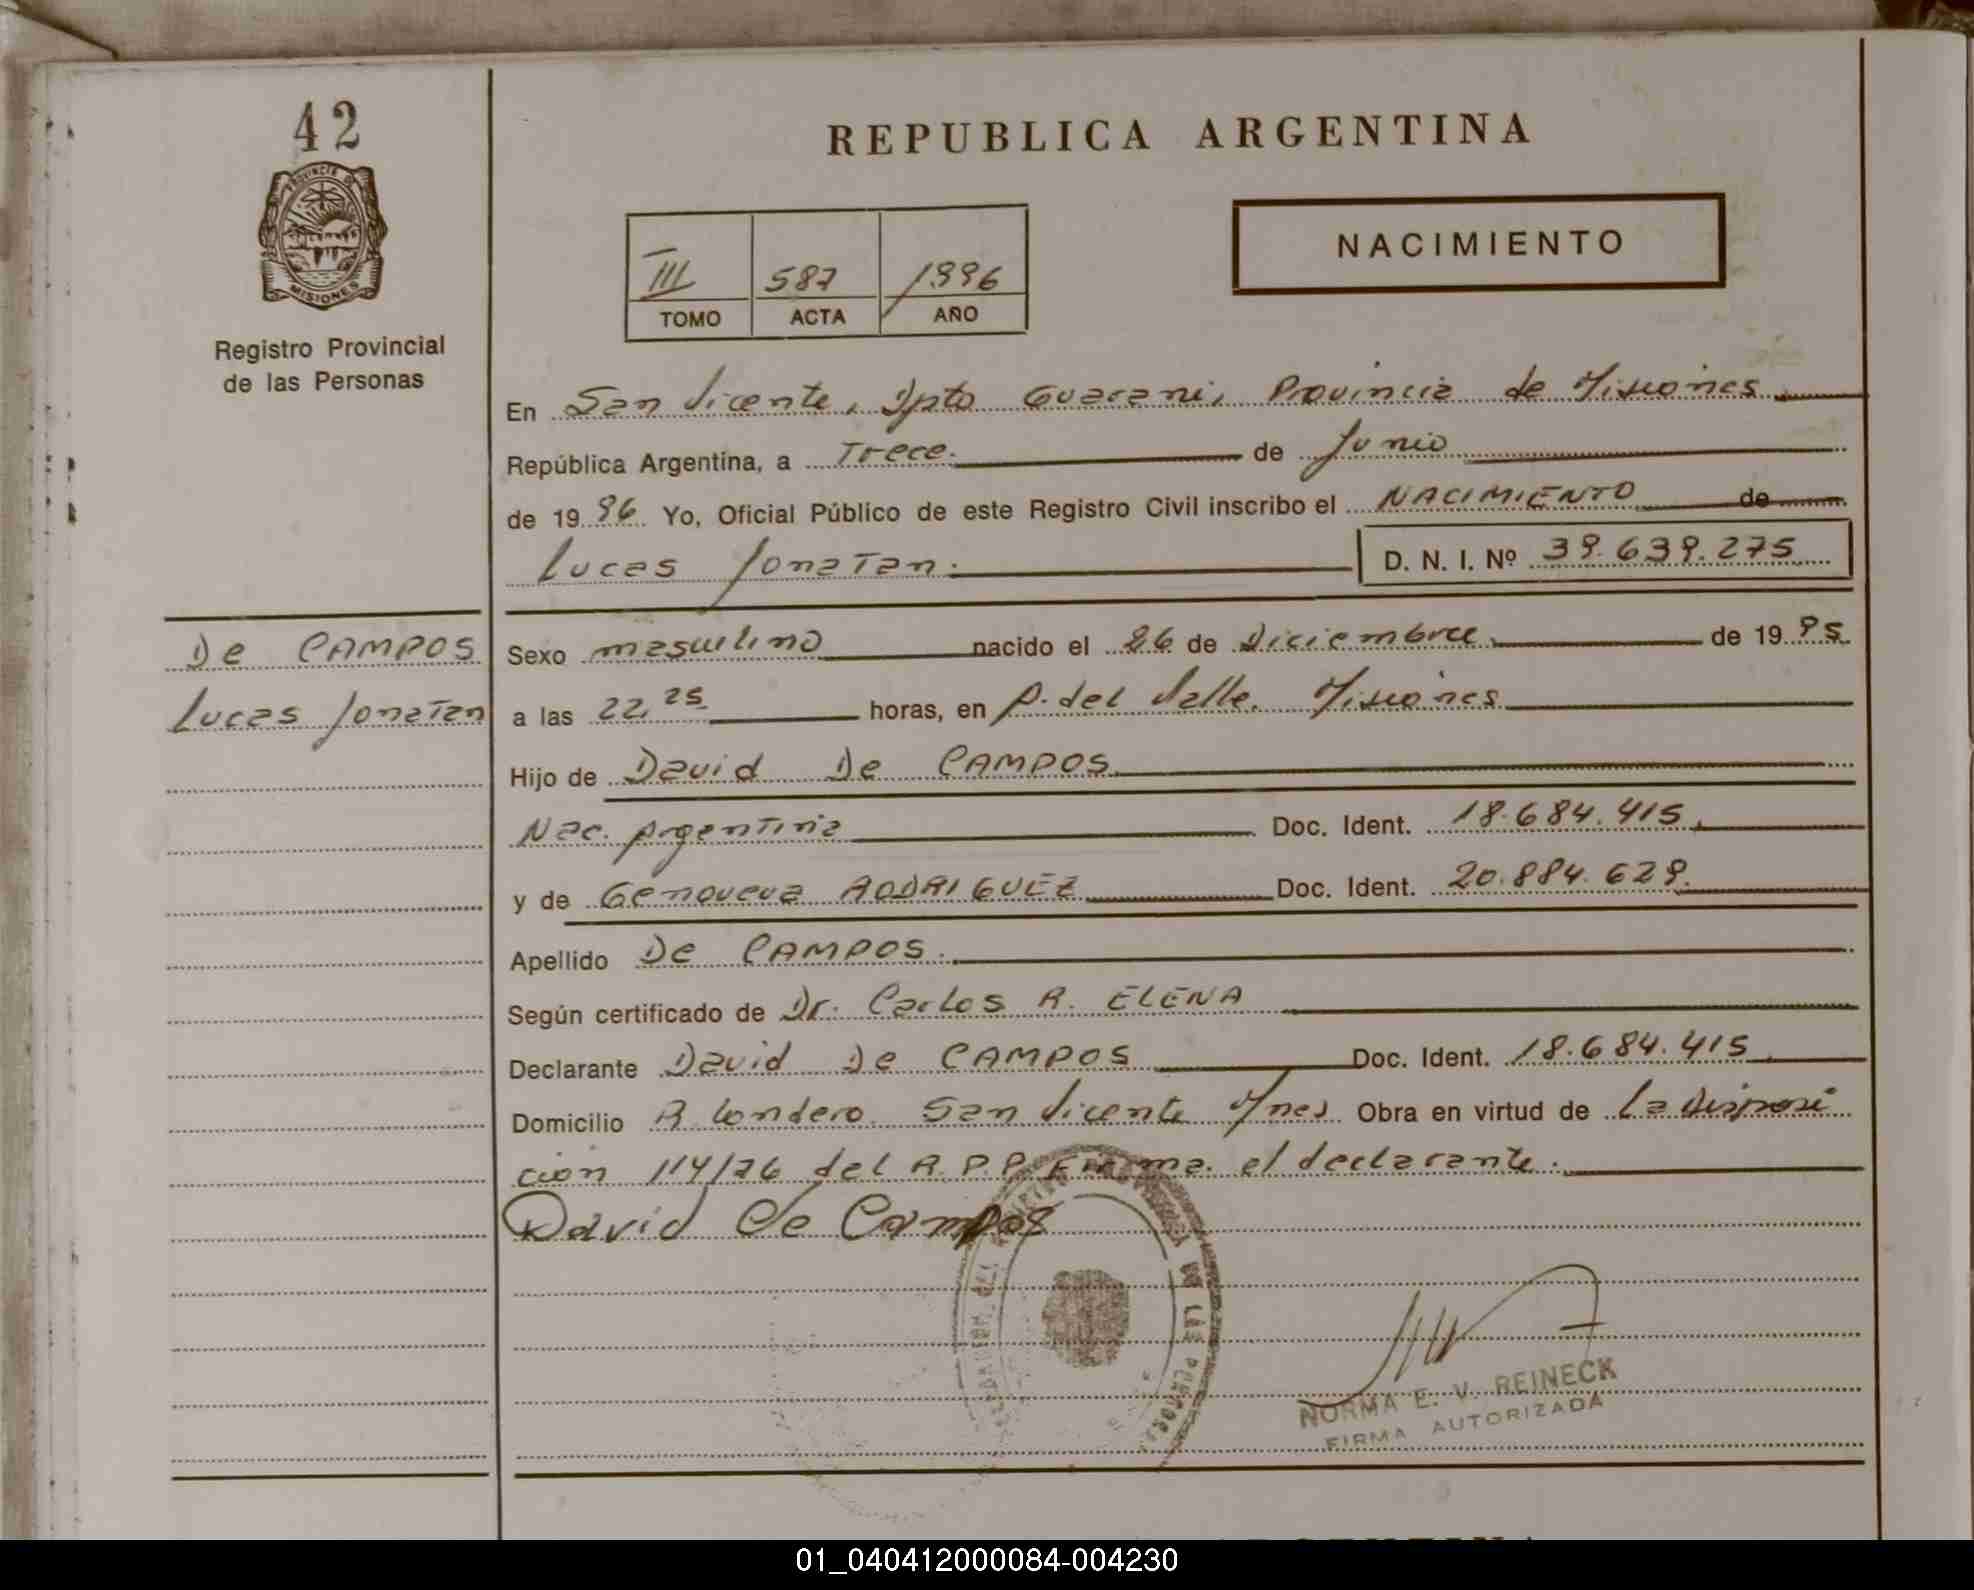 42
PROVINCIA DE
MISIONES
Registro Provincial
de las Personas
REPUBLICA ARGENTINA
NACIMIENTO
III 587 1996
TOMO ACTA AÑO
En San Vicente, Dpto Guarani, Provincia de Misiones
República Argentina, a Trece. de Junio
de 1996 Yo, Oficial Público de este Registro Civil inscribo el NACIMIENTO de
Lucas Jonatan. D. N. I. Nº 39.639.275
De CAMPOS
Lucas Jonatan
Sexo masculino nacido el 26 de Diciembre de 1995
a las 22,25 horas, en A. del Valle. Misiones
Hijo de David De CAMPOS
Nac. Argentina Doc. Ident. 18.684.415
y de Genoveva RODRIGUEZ Doc. Ident. 20.884.629
Apellido De CAMPOS.
Según certificado de Dr. Carlos R. ELENA
Declarante David De CAMPOS Doc. Ident. 18.684.415
Domicilio B. Londero. San Vicente Mnes Obra en virtud de La Disposi
cion 114/76 del R.P.P. Firma. el declarante.
David De Campos
DE LAS PERSONAS
NORMA E. V. REINECK
FIRMA AUTORIZADA
01_040412000084-004230